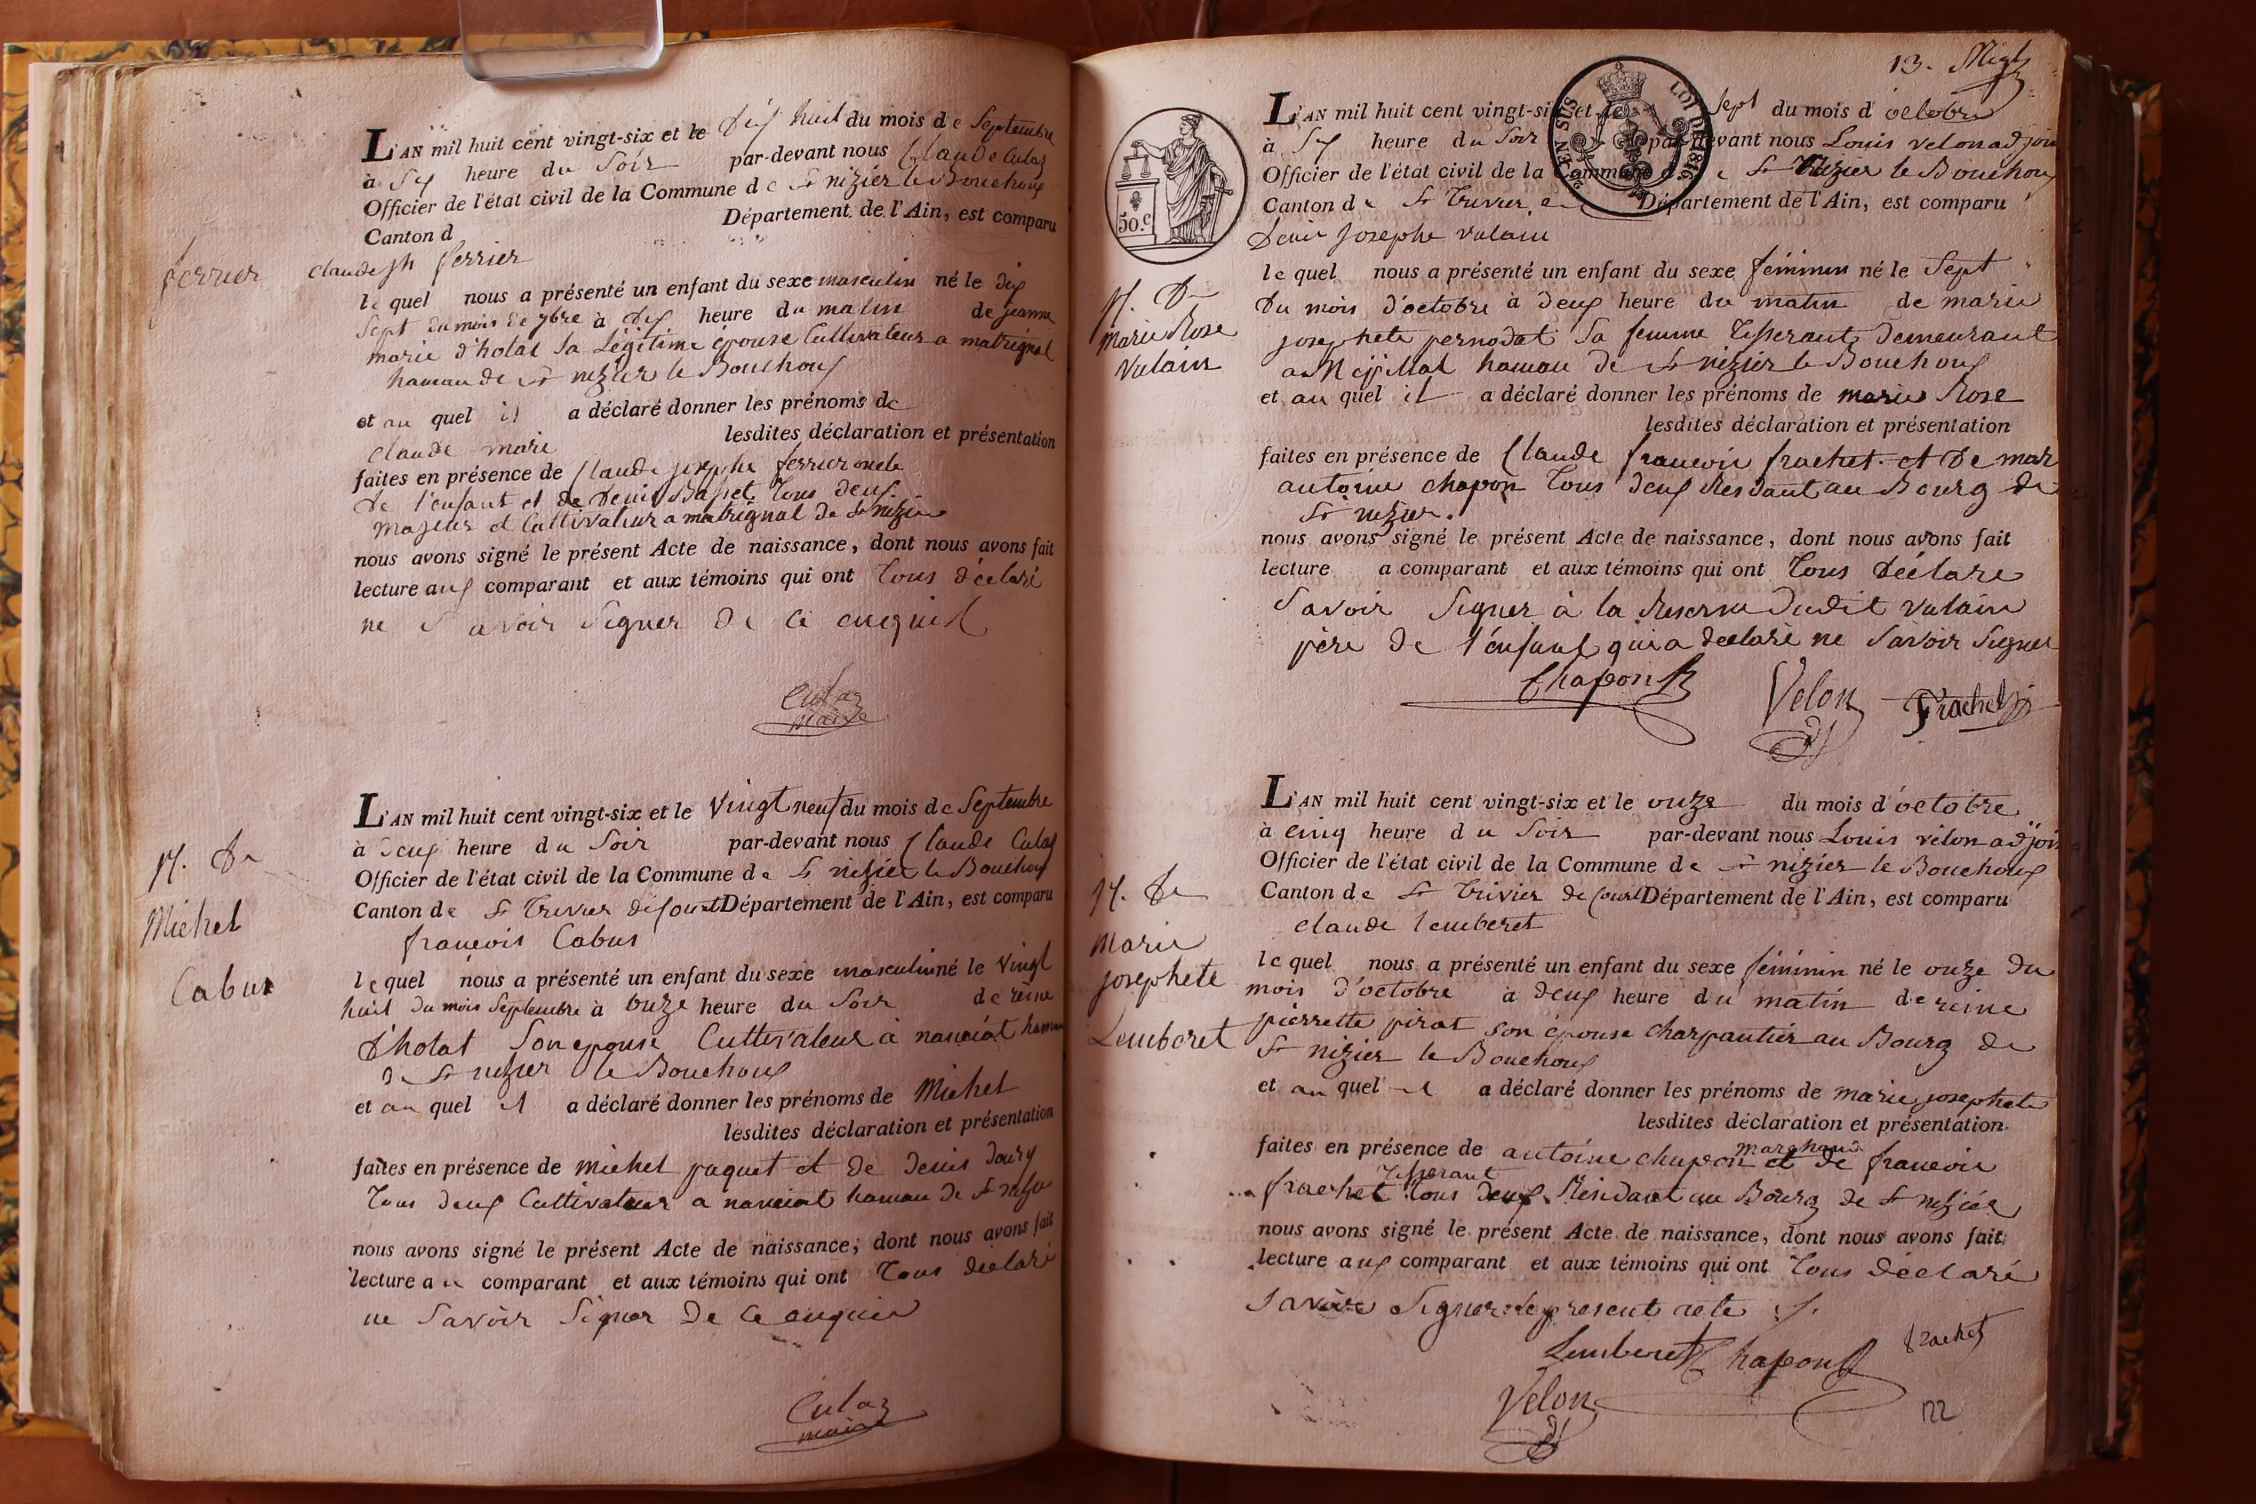 L'AN mil huit cent vingt-six et le dix huit du mois de Septembre
à six heure du Soir par-devant nous Claude Culaz
Officier de l'état civil de la Commune de St nizier le Bouchoux
Canton d Département de l'Ain, est comparu
ferrier
claude jh ferrier
le quel nous a présenté un enfant du sexe masculin né le dix
Sept du mois de 7bre à dix heure du matin de jeanne
marie d'holat Sa Légitime épouse Cultivateur a matrignat
hamau de St nizier le Bouchoux
et au quel il a déclaré donner les prénoms de
claude marie lesdites déclaration et présentation
faites en présence de Claude josephe ferrier oncle
De l'enfant et de Denis Basset Tous deux
majeur et Cultivateur a matrignat de St nizier
nous avons signé le présent Acte de naissance, dont nous avons fait
lecture aux comparant et aux témoins qui ont Tous déclaré
ne Savoir Signer de ce enquis
Culaz
maire
L'AN mil huit cent vingt-six et le vingt neuf du mois de Septembre
à deux heure du Soir par-devant nous Claude Culaz
Officier de l'état civil de la Commune de St nizier le Bouchoux
Canton de St Trivier de Court Département de l'Ain, est comparu
N. De
Michel
Cabus
francois Cabus
le quel nous a présenté un enfant du sexe masculin né le vingt
huit du mois Septembre à onze heure du Soir de reine
d'holat Son epouse Cultivateur à nanciat hamau
de St nizier le Bouchoux
et au quel il a déclaré donner les prénoms de Michel
lesdites déclaration et présentation
faites en présence de michel paquet et de denis Joury
Tous deux Cultivateur a nanciat hamau de St nizier
nous avons signé le présent Acte de naissance, dont nous avons fait
lecture au comparant et aux témoins qui ont Tous déclaré
ne Savoir Signer De ce enquis
Culaz
maire
13.
EN SUS
LOI DE 1816
50.c
L'AN mil huit cent vingt-six et le Sept du mois d'octobre
à six heure du Soir par-devant nous Louis velon adjoin
Officier de l'état civil de la Commune de St Nizier le Bouchoux
Canton de St Trivier Département de l'Ain, est comparu
Denis Josephe vulain
N. De
Marie Rose
Vulain
le quel nous a présenté un enfant du sexe féminin né le Sept
Du mois d'octobre à deux heure du matin de marie
josephete pernodat Sa femme Tisserant demeurant
a hamau de St nizier le Bouchoux
et au quel il a déclaré donner les prénoms de marie Rose
lesdites déclaration et présentation
faites en présence de Claude francois frachet et de mar
antoine chapon Tous deux Residant au Bourg de
St nizier.
nous avons signé le présent Acte de naissance, dont nous avons fait
lecture a comparant et aux témoins qui ont Tous déclaré
Savoir Signer à la Reserve dudit vulain
père de l'enfant qui a declaré ne Savoir Signer
Chapon
Velon
Frachet
L'AN mil huit cent vingt-six et le onze du mois d'octobre
à cinq heure du Soir par-devant nous Louis vélon adjoin
Officier de l'état civil de la Commune de St nizier le Bouchoux
Canton de St Trivier de Court Département de l'Ain, est comparu
N. De
Marie
josephete
Lemberet
claude lemberet
le quel nous a présenté un enfant du sexe féminin né le onze du
mois d'octobre à deux heure du matin de reine
pierrette pirat son épouse charpantier au Bourg de
St nizier le Bouchoux
et au quel il a déclaré donner les prénoms de marie josephete
lesdites déclaration et présentation
faites en présence de antoine chapon marchand et de francois
frachet Tisserant tous deux Résidant au Bourg de St nizier
nous avons signé le présent Acte de naissance, dont nous avons fait
lecture aux comparant et aux témoins qui ont Tous déclaré
savoir Signer le present acte
Lemberet Chapon frachet
Velon
122